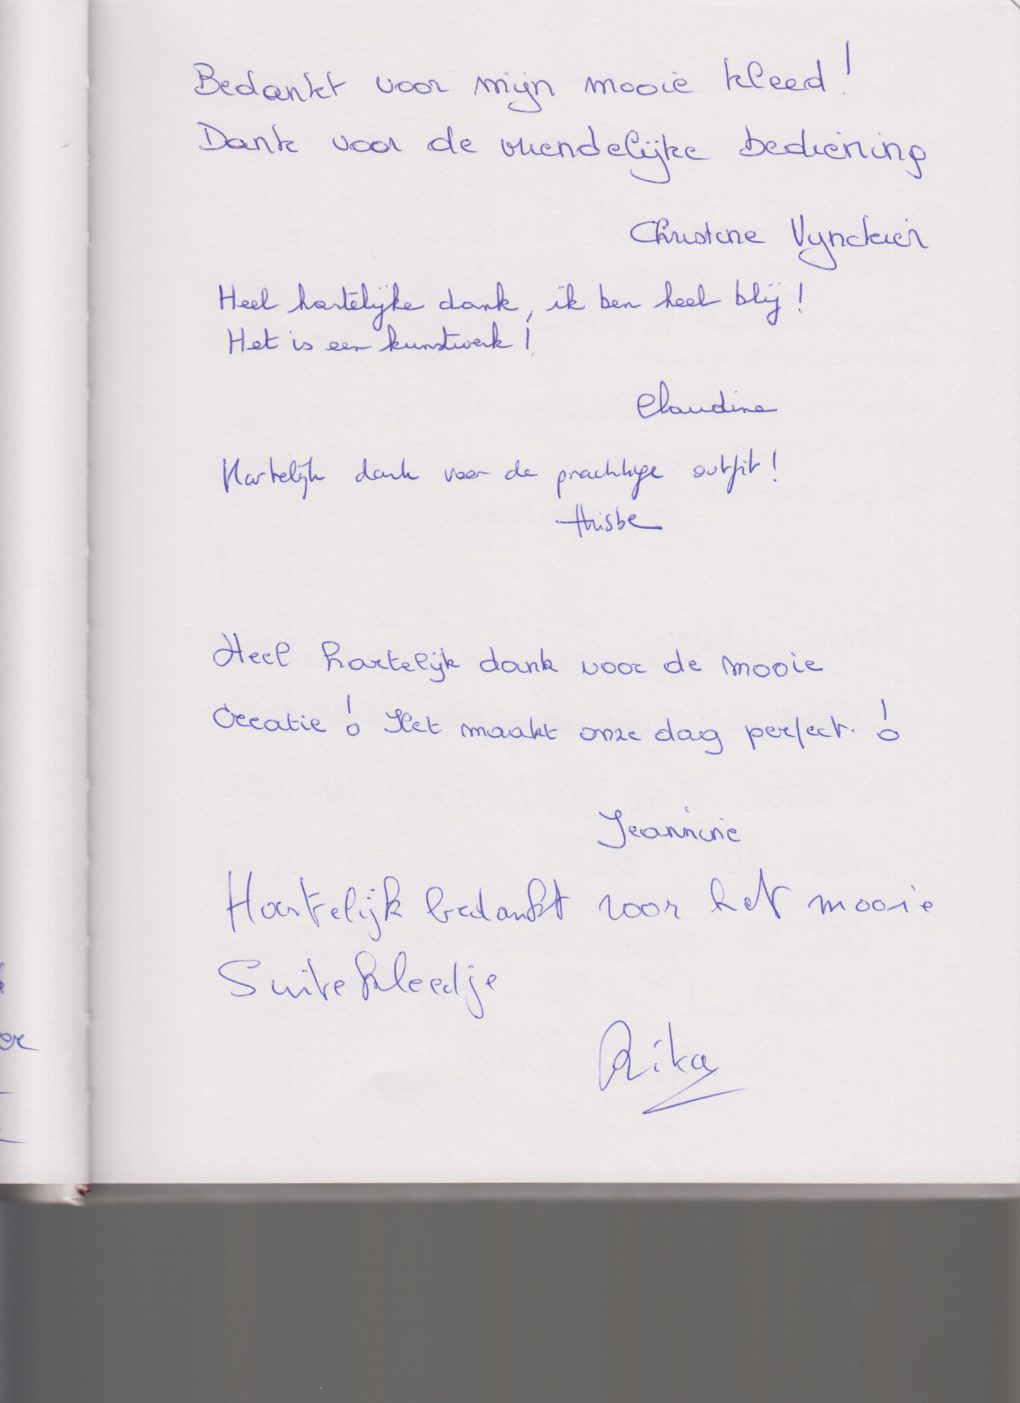 Bedankt voor mijn mooie kleed!
Dank voor de vriendelijke bediening
Christine Vynckier
Heel hartelijke dank, ik ben heel blij!
Het is een kunstwerk!
Claudine
Hartelijk dank voor de prachtige outfit!
Thisbe
Heel hartelijk dank voor de mooie
Creatie! Het maakt onze dag perfect.!
Jeannine
Hartelijk bedankt voor het mooie
Suitekleedje
Rika